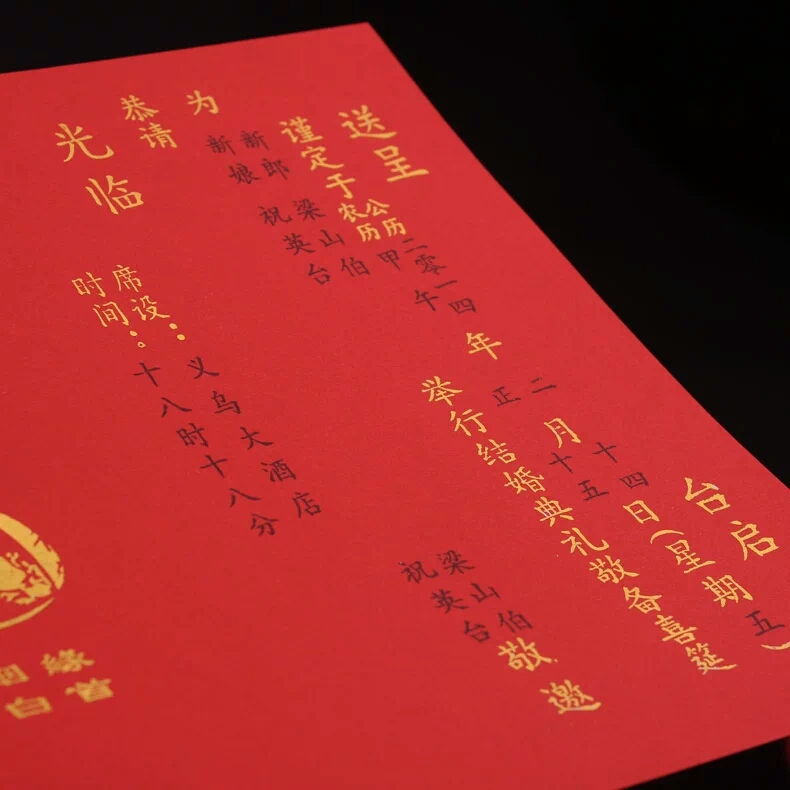 送呈 台启
谨定于 公历 二零一四 年 二 月 十四 日(星期 五 )
农历 甲午 正 十五
为 新郎 梁山伯
新娘 祝英台
举行结婚典礼敬备喜筵
恭请
光临
梁山伯
祝英台
敬邀
席设:义乌大酒店
时间:十八时十八分
緣
白首